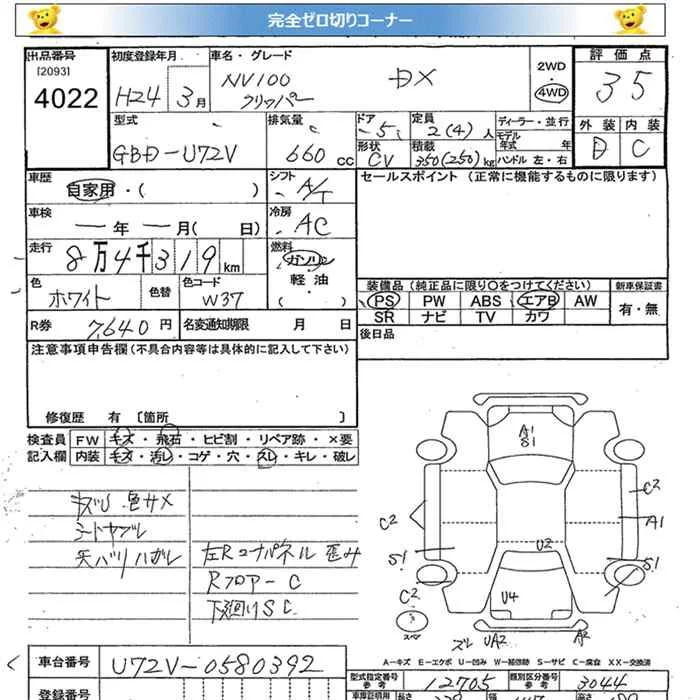 完全ゼロ切りコーナー
出品番号 初度登録年月 車名・グレード 評価点
[2093] 2WD
4022 H24 3月 NV100 クリッパー DX 4WD 35
型式 排気量 ドア 定員 ディーラー・並行 外装 内装
5 2(4)人 モデル年式 年
GBD-U72V 660cc 形状 CV 積載 350(250)kg ハンドル 左・右 D C
車歴 自家用・( ) シフト A/T セールスポイント (正常に機能するものに限ります)
車検 ー年ー月(ー日) 冷房 AC
走行 8万4千319km 燃料 ガソリン
軽油
・( )
色 ホワイト 色替 色コード W37
装備品 (純正品に限り〇をつけてください) 新車保証書
PS PW ABS エアB AW 有・無
SR ナビ TV カワ
R券 7640円 名変通知期限 月 日 後日品
注意事項申告欄(不具合内容等は具体的に記入して下さい)
修復歴 有 [箇所 ]
検査員 FW キズ・飛石・ヒビ割・リペア跡・×要
記入欄 内装 キズ・汚レ・コゲ・穴・スレ・キレ・破レ
キズU 色サメ
シートヤブレ
天バリハガレ 左Rコーナパネル 歪み
Rフロアー C
下廻りSC
A1
S1
C2
A1
C2
U2
S1
S1
C2
U4
スペア
ズレ UA2 A2
A-キズ E-エクボ U-凹み W-補修跡 S-サビ C-腐食 XX-交換済
車台番号 U72V-0580392
型式指定番号 参考 12705 類別区分番号 参考 3044
登録番号
車庫証明用 参考 長さ